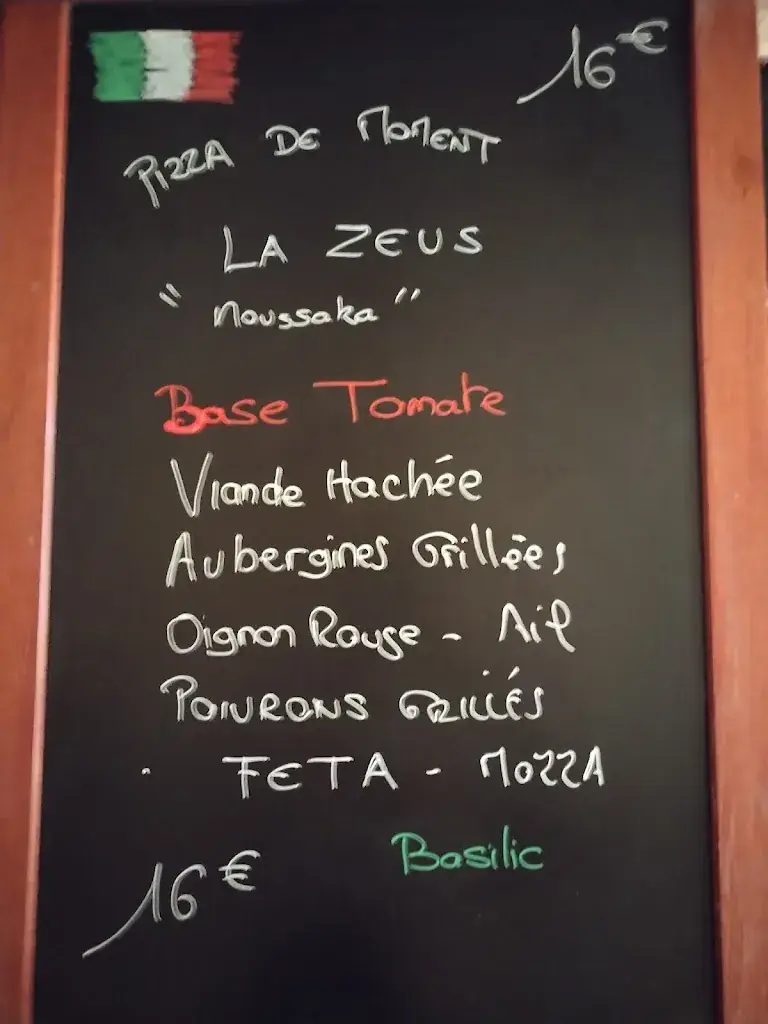 16€
PIZZA DE MOMENT
LA ZEUS
" Moussaka "
Base Tomate
Viande Hachée
Aubergines Grillées
Oignon Rouge - Ail
POIVRONS GRILLÉS
FETA - MOZZA
Basilic
16€